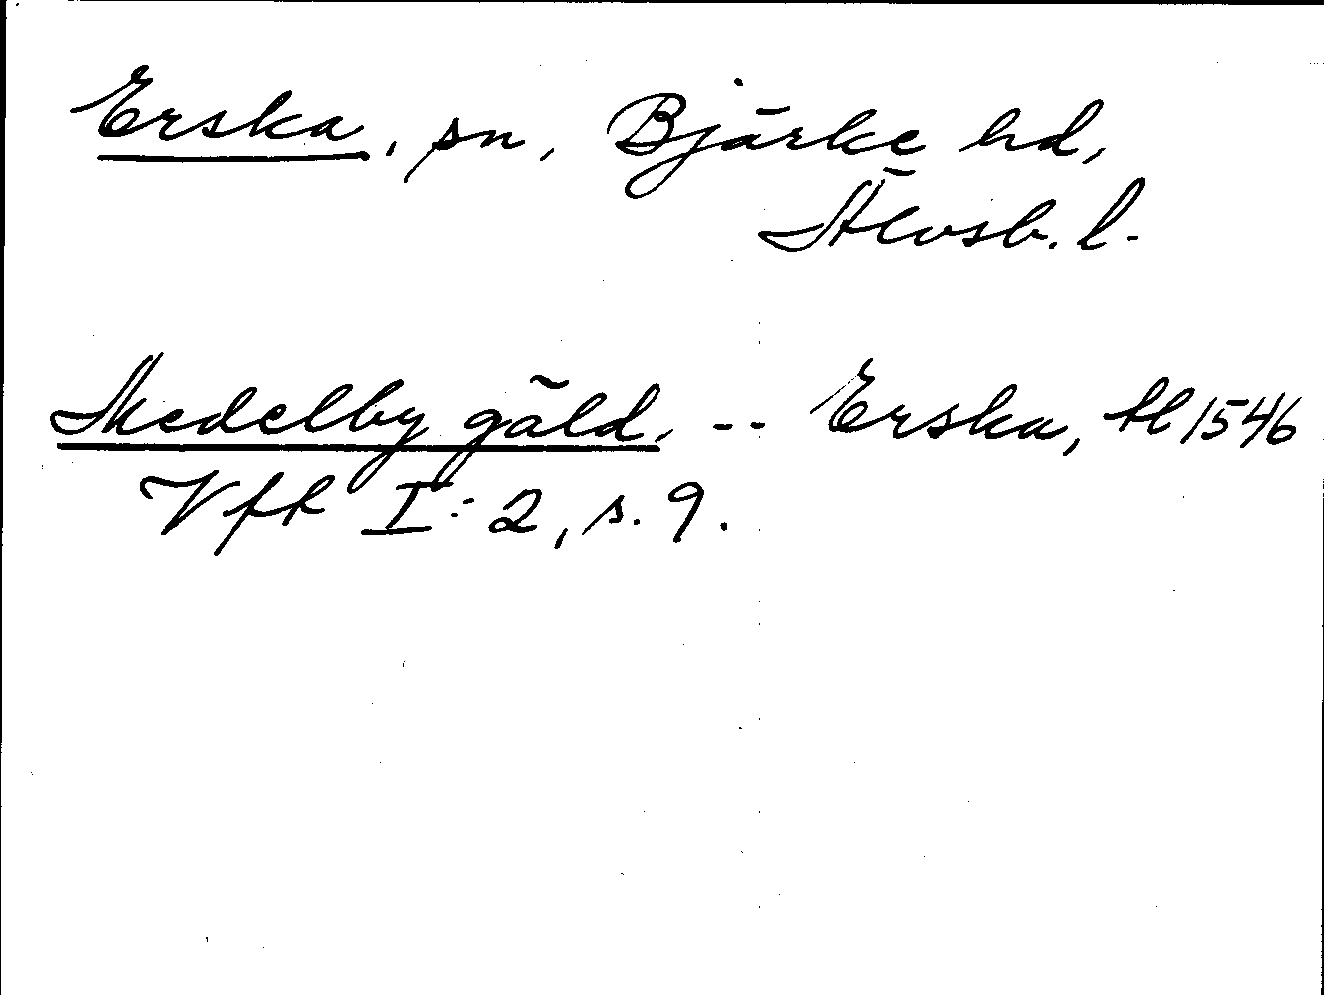 Erska, sn, Bjärke hd,
Älvsb. l.
Medelby gäld, -- Erska, 1546
I:2, s. 9.